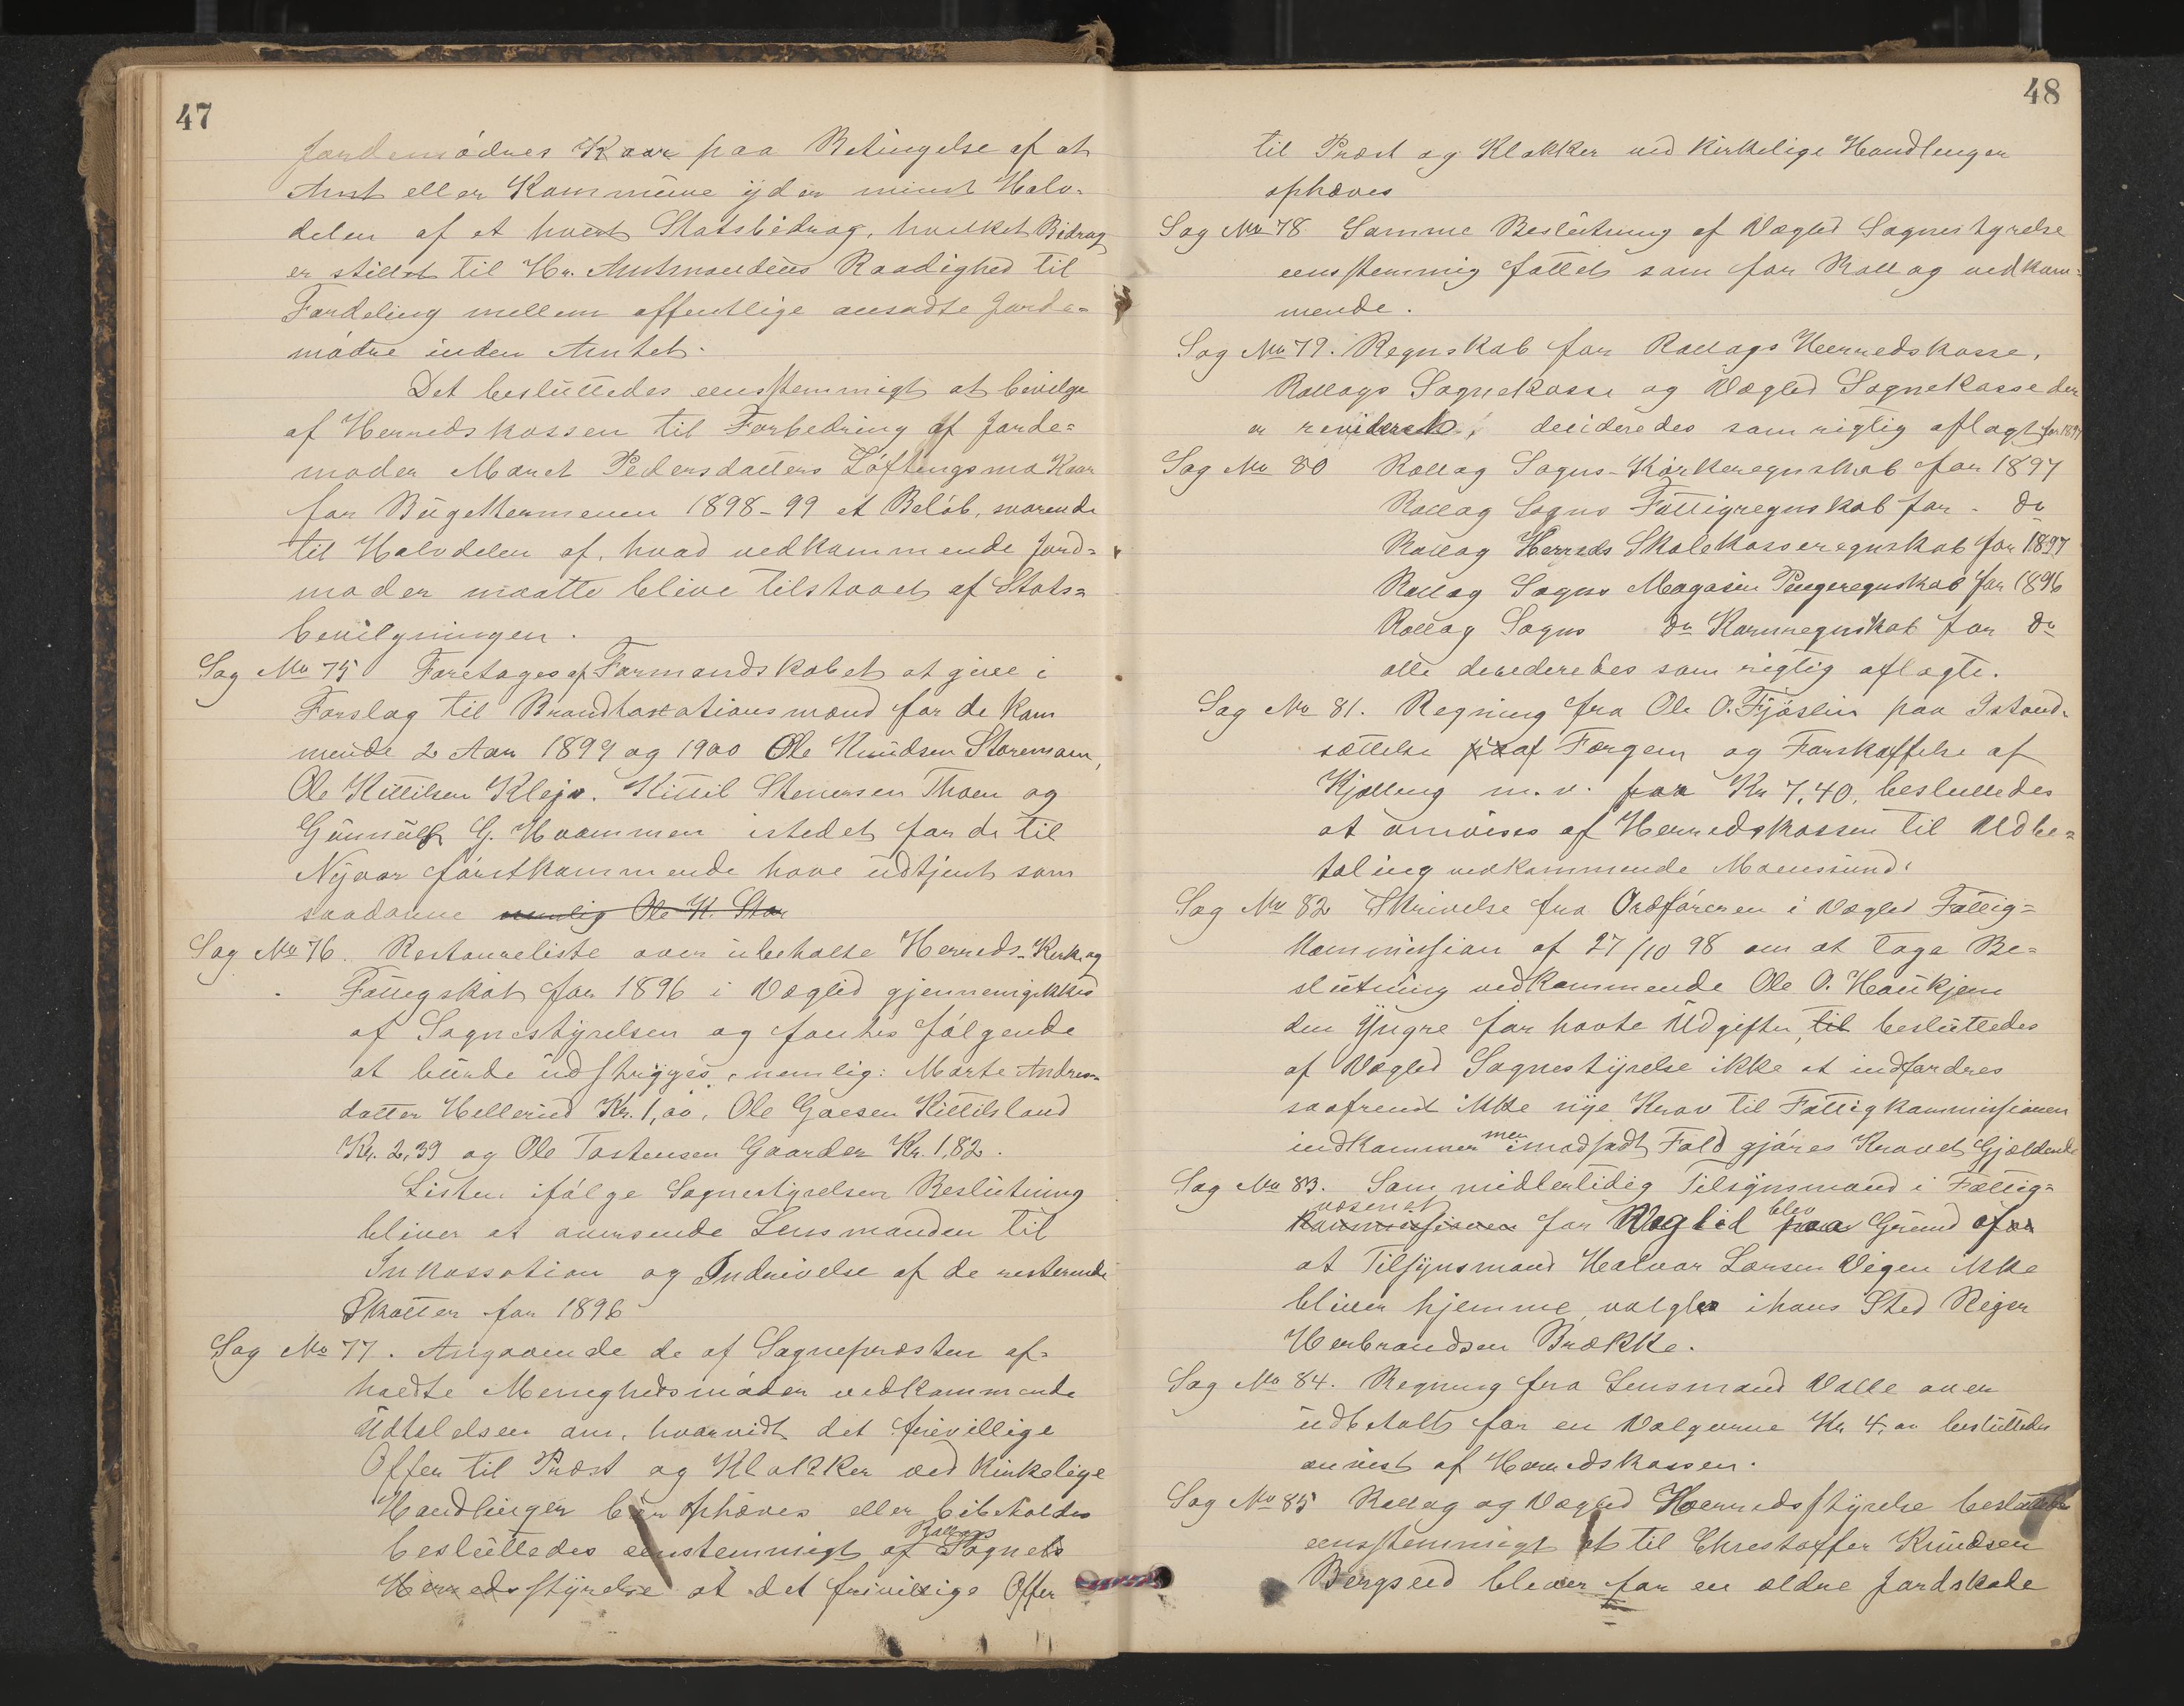 47
Jordemødres Kaar paa Betingelse af at
Amt eller Kommune yder mindst Halv-
delen af et hvert Statsbidrag, hvilket Bidrag
er stillet til Hr. Amtmandens Raadighed til
Fordeling mellem offentlige ansadte Jorde-
mødre inden Amtet.
Det besluttedes eenstemmigt at bevilge
af Herredskassen til Forbedring af Jorde=
moder Marit Pedersdatters Løftingsmo Kaar
for Budgetterminen 1898-99 et Beløb, svarende
til Halvdelen af, hvad vedkommende Jord=
moder maatte blive tilstaaet af Stats=
bevilgningen.
Sag No 75 Foretages af Formandskabet at give i
Forslag til Brandtaxationsmænd for de kom
mende 2 Aar 1899 og 1900 Ole Knudsen Storemoen,
Ole Kittilsen Klejv. Kittil Stenersen Thoen og
Gunnulf G. Hvammen istedet for de til
Nyaar førstkommende have udtjent som
saadanne nemlig Ole K. Stor
Sag No 76. Restanceliste over ubetalte Herreds-Kirke og
Fattigskat for 1896 i Væglid gjennemgikkes
af Sognestyrelsen og fantes følgende
at burde udstryges, nemlig: Marte Andres-
datter Hellerud Kr. 1,00, Ole Goesen Kittilsland
Kr. 2,39 og Ole Tostensen Gaarder Kr. 1,82.
Listen ifølge Sognestyrelsen Beslutning
bliver at oversende Lensmanden til
Inkassation og Inddrivelse af de resterende
Skatter for 1896
Sag No 77. Angaaende de af Sognepræsten af-
holdte Menighedsmøder vedkommende
Udtalelser om, hvorvidt det frievillige
Offer til Præst og Klokker ved Kirkelige
Handlinger bør ophæves eller bibeholdes
besluttedes eenstemmigt af Rollags Sognets
Herredsstyrelse at det frivillige Offer
48
til Præst og Klokker ved kirkelige Handlinger
ophæves
Sag No 78 Samme Beslutning af Vægled Sognestyrelse
eenstemmig fattet som for Rollag vedkom-
mende.
Sag No 79. Regnskab for Rollags Herredskasse,
Rollags Sognekasse og Vægled Sognekasse der
er revideret, decideredes som rigtig aflagt for 1897
Sag No 80 Rollag Sogns-Kirkeregnskab for 1897
Rollag Sogns Fattigregnskab for - do
Rollag Herreds Skolekasseregnskab for 1897
Rollag Sogns Magasin Pengeregnskab for 1896
Rollag Sogns do Kornregnskab for do
alle decideredes som rigtig aflagte.
Sag No 81. Regning fra Ole O. Fjøslin paa Istand-
sættelse paa af Færgen og Forskaffelse af
Kjætting m.v. paa Kr 7,40, besluttedes
at anvises af Herredskassen til Udbe=
taling vedkommende Moensund.
Sag No 82 Skrivelse fra Ordføreren i Vægled Fattig=
kommission af 27/10 98 om at tage Be=
slutning vedkommende Ole O. Haukjem
den Yngre for havte Udgifter, til besluttedes
af Vægled Sognestyrelse ikke at indfordres
saafremt ikke nye Krav til Fattigkommissionen
indkommer men i modsadt Fald gjøres Kravet Gjældende
Sag No 83. Som midlertidig Tilsynsmand i Fattig=
væsenet Kommissionen for Væglid blev paa Grund af
at Tilsynsmand Halvor Larsen Vigen ikke
bliver hjemme, valgtes i hans Sted Reier
Herbrandsen Brække.
Sag No 84. Regning fra Lensmand Valle over
udbetalt for en Valgurne Kr 4,00 besluttedes
anvist af Herredskassen.
Sag No 85 Rollag og Vægled Herredsstyrelse besluttedes
eenstemmigt at til Christoffer Knudsen
Bergseid bliver for en ældre Jordskade